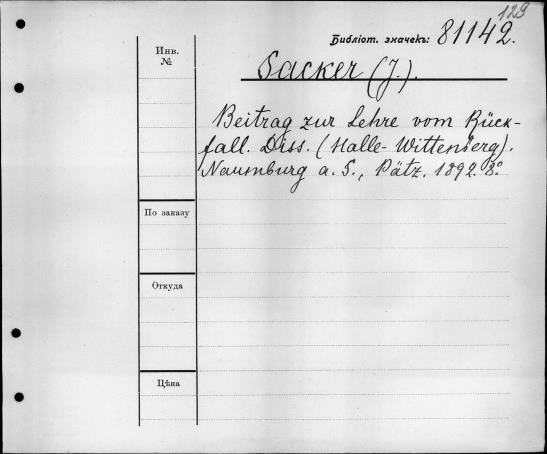 129
Библіот. значекъ: 81142.
Инв.
№
Sacker (J.).
Beitrag zur Lehre vom Rück-
fall. Diss. (Halle-Wittenberg).
Naumburg a. S., Pätz. 1892. 8.º
По заказу
Откуда
Цѣна